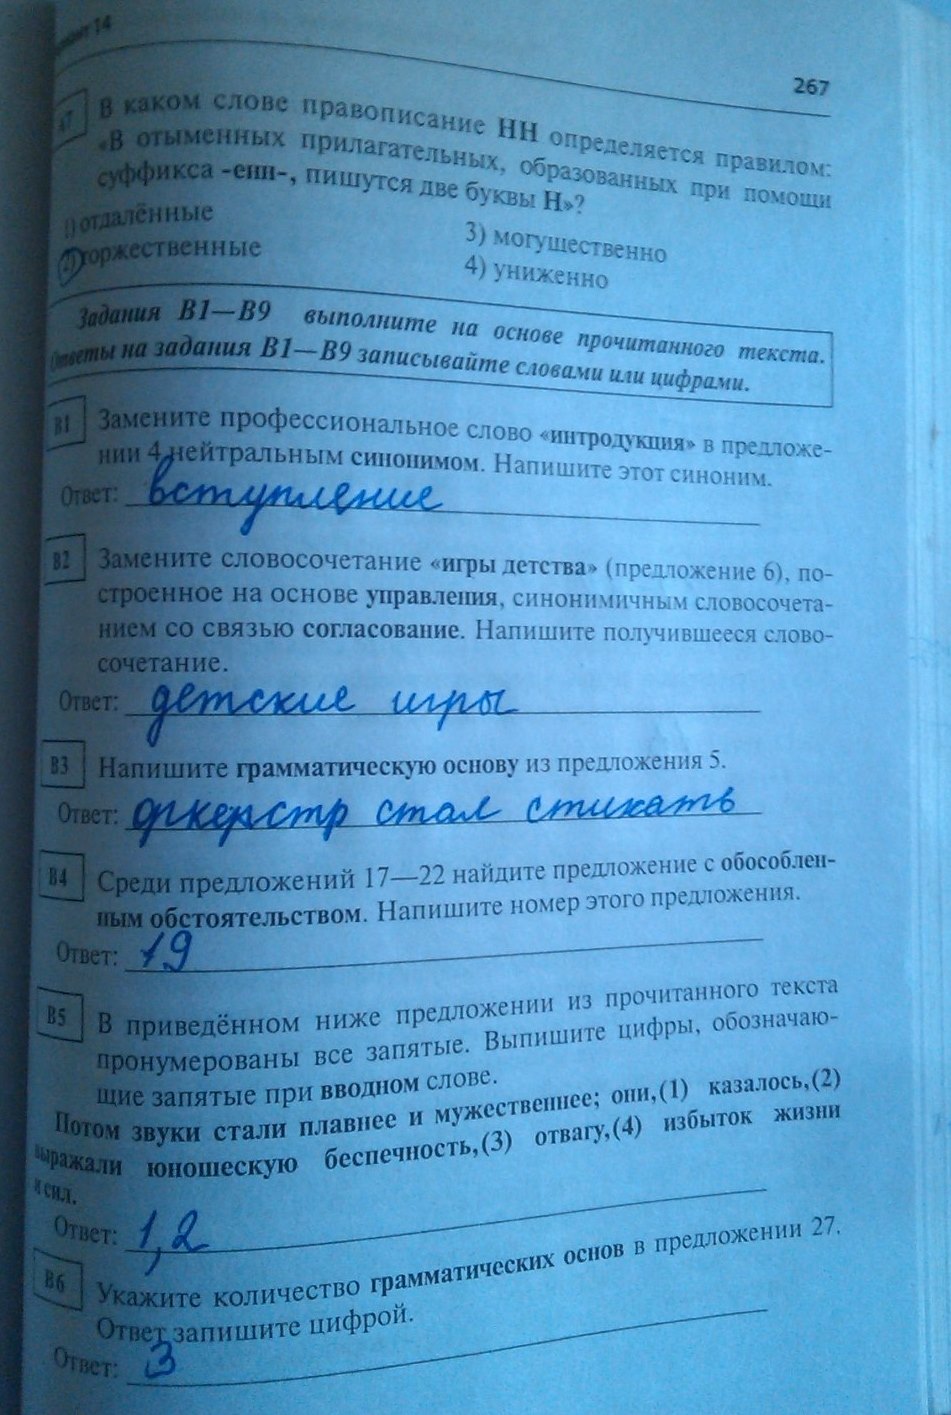 267
В каком слове правописание НН определяется правилом:
«В отыменных прилагательных, образованных при помощи
суффикса -енн-, пишутся две буквы Н»?
1) отдалённые
2) торжественные
3) могущественно
4) униженно
Задания В1—В9 выполните на основе прочитанного текста.
Ответы на задания В1—В9 записывайте словами или цифрами.
В1 Замените профессиональное слово «интродукция» в предложе-
нии 4 нейтральным синонимом. Напишите этот синоним.
Ответ: вступление
В2 Замените словосочетание «игры детства» (предложение 6), по-
строенное на основе управления, синонимичным словосочета-
нием со связью согласование. Напишите получившееся слово-
сочетание.
Ответ: детские игры
В3 Напишите грамматическую основу из предложения 5.
Ответ: оркерстр стал стихать
В4 Среди предложений 17—22 найдите предложение с обособлен-
ным обстоятельством. Напишите номер этого предложения.
Ответ: 19
В5 В приведённом ниже предложении из прочитанного текста
пронумерованы все запятые. Выпишите цифры, обозначаю-
щие запятые при вводном слове.
Потом звуки стали плавнее и мужественнее; они,(1) казалось,(2)
выражали юношескую беспечность,(3) отвагу,(4) избыток жизни
и сил.
Ответ: 1,2
В6 Укажите количество грамматических основ в предложении 27.
Ответ запишите цифрой.
Ответ: 3